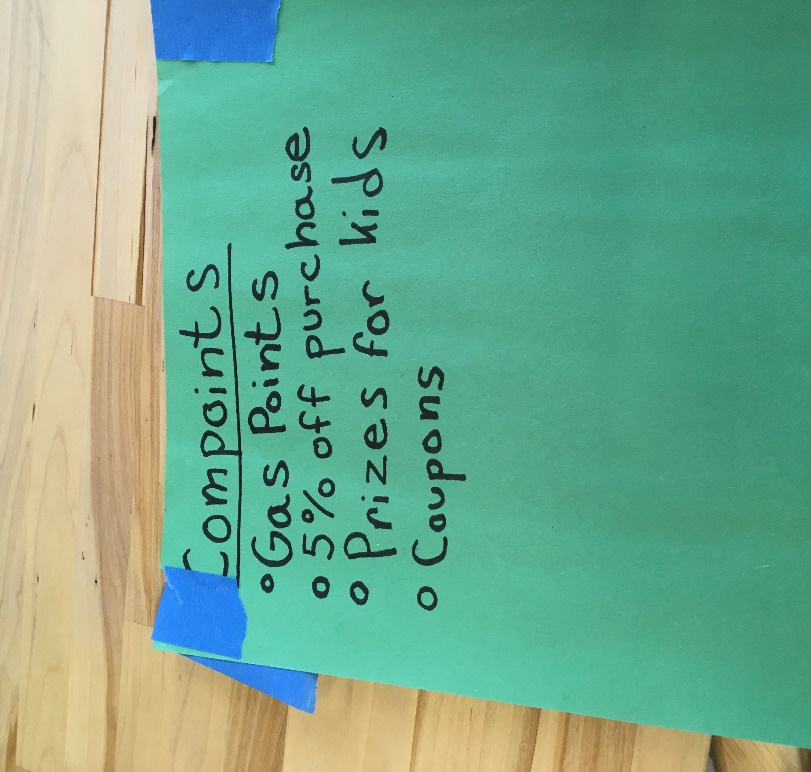 Compoints
• Gas Points
• 5% off purchase
• Prizes for kids
• Coupons